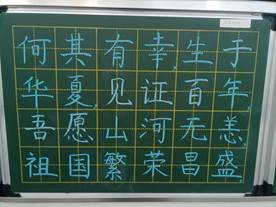 何其有幸,生于
华夏,见证百年,
吾愿山河无恙,
祖国繁荣昌盛